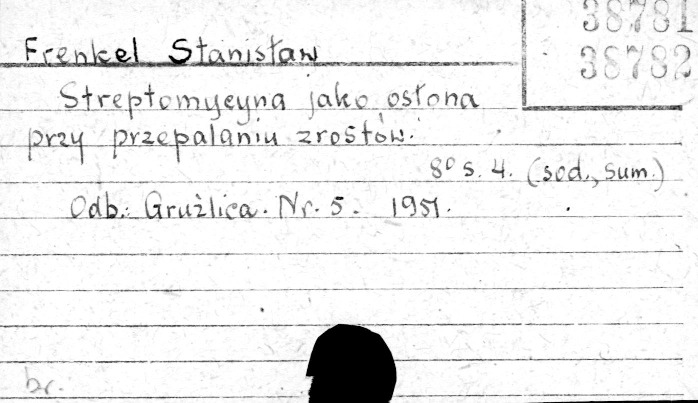 38781
38782
Frenkel Stanisław
Streptomycyna jako osłona
przy przepalaniu zrostów.
8° s. 4. (sod., sum.)
Odb.: Gruźlica. Nr. 5. 1951.
br.